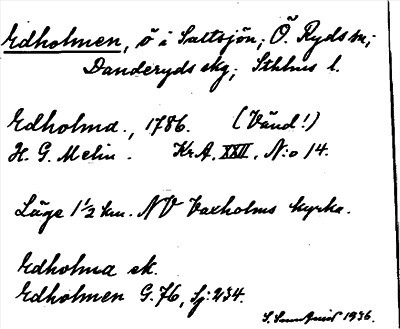 Edholmen, ö i Saltsjön; Ö. Ryds sn;
Danderyds skg; Sthlms l.
Edholma., 1786. (Vänd!)
H. G. Melin. Kr.A. XXII. N:o 14.
Läge 1 1/2 km. NV Vaxholms kyrka.
Edholma ek.
Edholmen G. 76, Sj: 234.
1936.